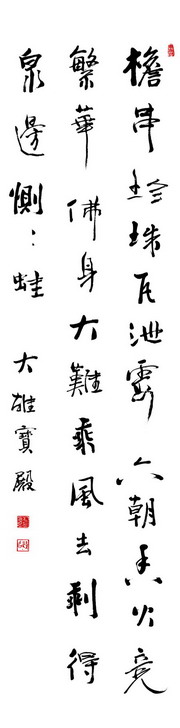 檐串珠瓦泄霞六朝香火竟
繁華佛身大難乘風去剩得
泉邊惻:蛙 大雄寶殿